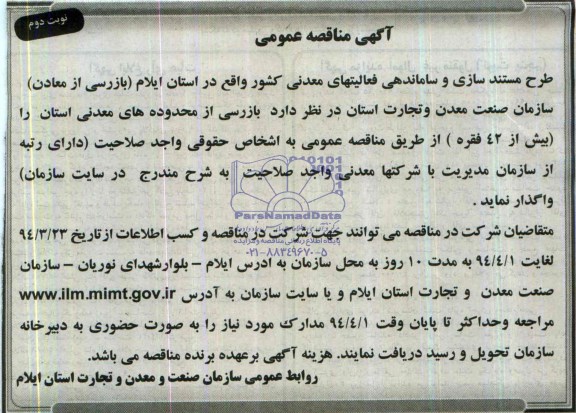 نوبت دوم
آگهی مناقصه عمومی
طرح مستند سازی و ساماندهی فعالیتهای معدنی کشور واقع در استان ایلام (بازرسی از معادن)
سازمان صنعت معدن وتجارت استان در نظر دارد بازرسی از محدوده های معدنی استان را
(بیش از ٤٢ فقره ) از طریق مناقصه عمومی به اشخاص حقوقی واجد صلاحیت (دارای رتبه
از سازمان مدیریت با شرکتها معدنی واجد صلاحیت به شرح مندرج در سایت سازمان)
واگذار نماید .
ParsNamadData
متقاضیان شرکت در مناقصه می توانند جهت شرکت در مناقصه و کسب اطلاعات از تاریخ ٩٤/٣/٢٣
پایگاه اطلاع رسانی مناقصه و مزایده
لغایت ٩٤/٤/١ به مدت ١٠ روز به محل سازمان به ادرس ایلام – بلوارشهدای نوریان – سازمان
٠٢١-٨٨٣٤٩٦٧٠-٥
صنعت معدن و تجارت استان ایلام و یا سایت سازمان به آدرس www.ilm.mimt.gov.ir
مراجعه وحداکثر تا پایان وقت ٩٤/٤/١ مدارک مورد نیاز را به صورت حضوری به دبیرخانه
سازمان تحویل و رسید دریافت نمایند. هزینه آگهی برعهده برنده مناقصه می باشد.
روابط عمومی سازمان صنعت و معدن و تجارت استان ایلام